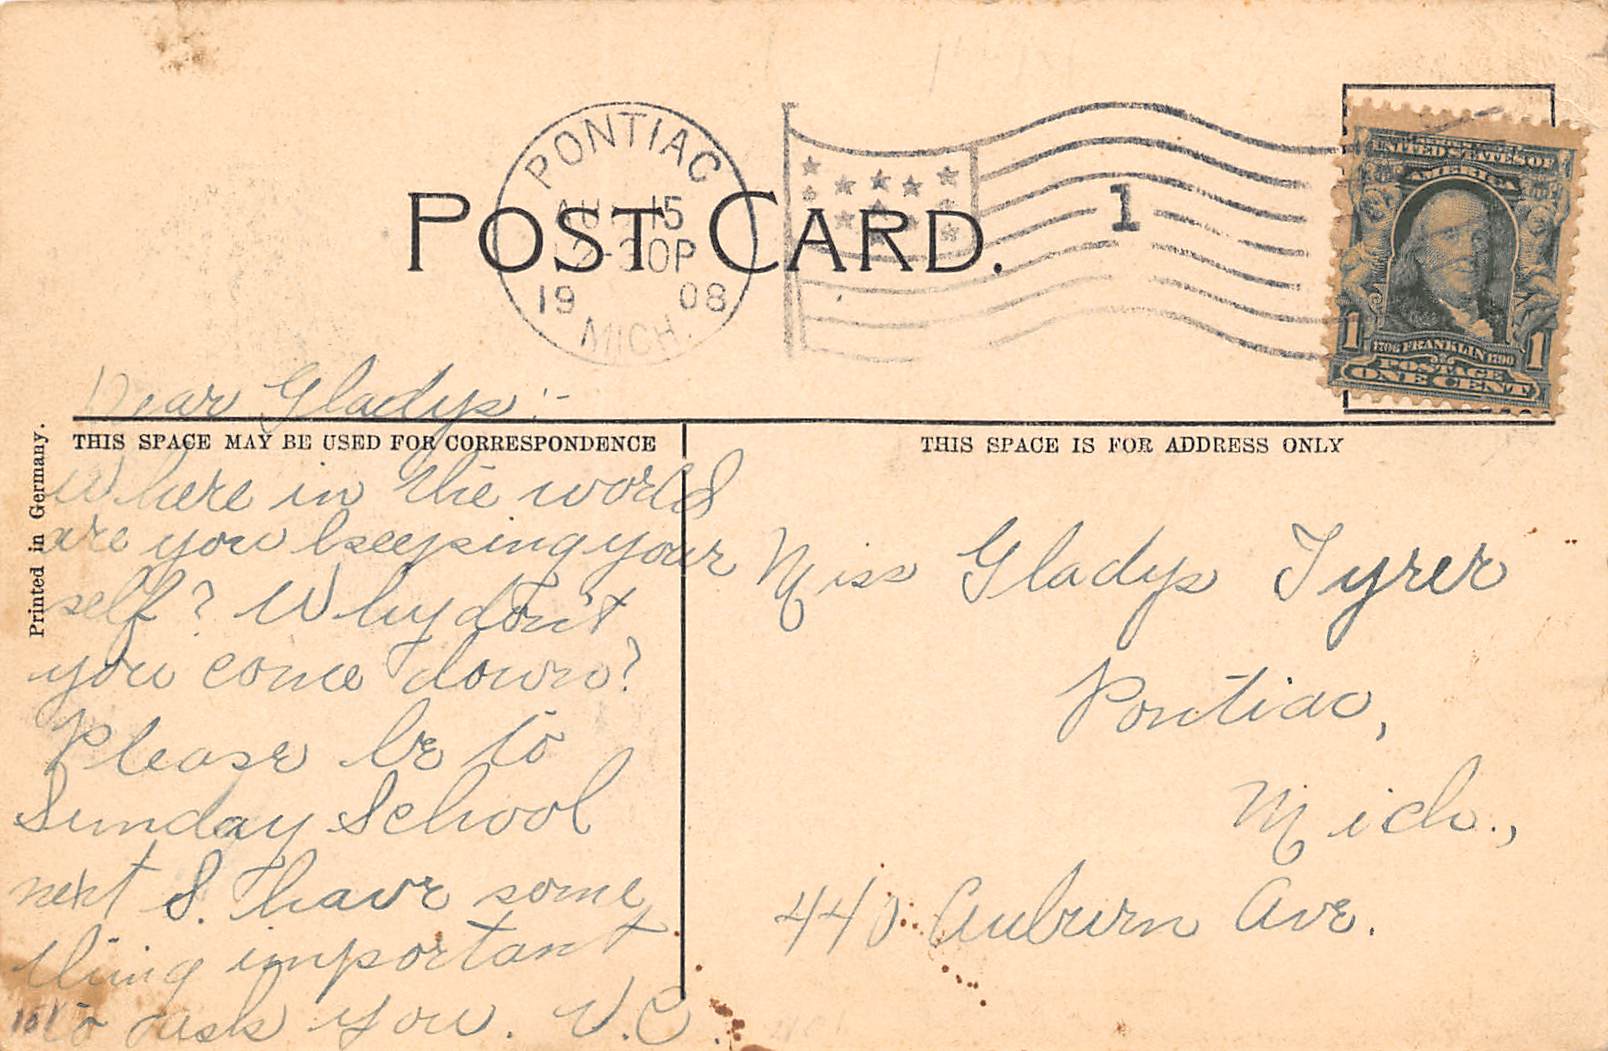 PONTIAC
AUG 15
12-30P
19 08
MICH.
1
POST CARD.
UNITED STATES OF
AMERICA
1 1
1706 FRANKLIN 1790
POSTAGE
ONE CENT
Printed in Germany.
Dear Gladys :-
THIS SPACE MAY BE USED FOR CORRESPONDENCE
Where in the world
are you keeping your
self? Why don't
you come down?
Please be to
Sunday School
next S. have some
thing important
to ask you. V.C.
THIS SPACE IS FOR ADDRESS ONLY
Miss Gladys Tyrer
Pontiac,
Mich.,
440 Auburn Ave.